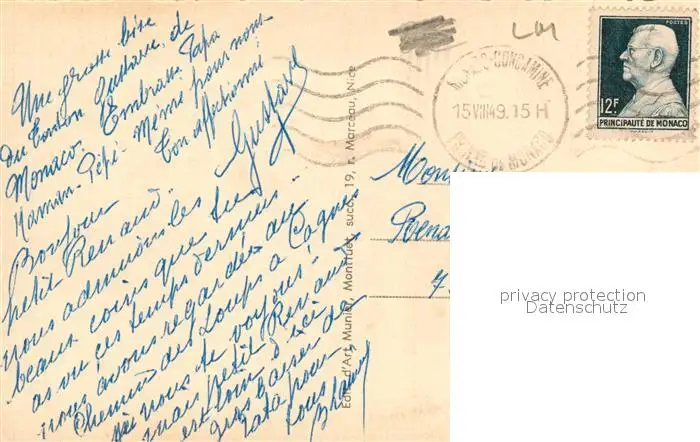 Une grosse bise
du Tonton Gustave, de
Monaco. Embrasse Papa
Maman - Pépé - Mémé pour nous
Ton affectionné
Gustave
Bonjour
petit Renaud"
nous admirons les
beaux coins que tu
as vu ces temps derniers"
nous avons regardé au
Chemin des Loups à Cagnes
si nous te voyons"
mais petit Renaud
est loin d'ici
gros baiser de
Tata pour
tous
Edit. d'Art Munier, Montfuet, succ., 19, r. Marceau, Nice
MONTE-CARLO-CONDAMINE
15 VIII 49. 15 H
PPTE DE MONACO
POSTES
12F
PRINCIPAUTÉ DE MONACO
privacy protection
Datenschutz